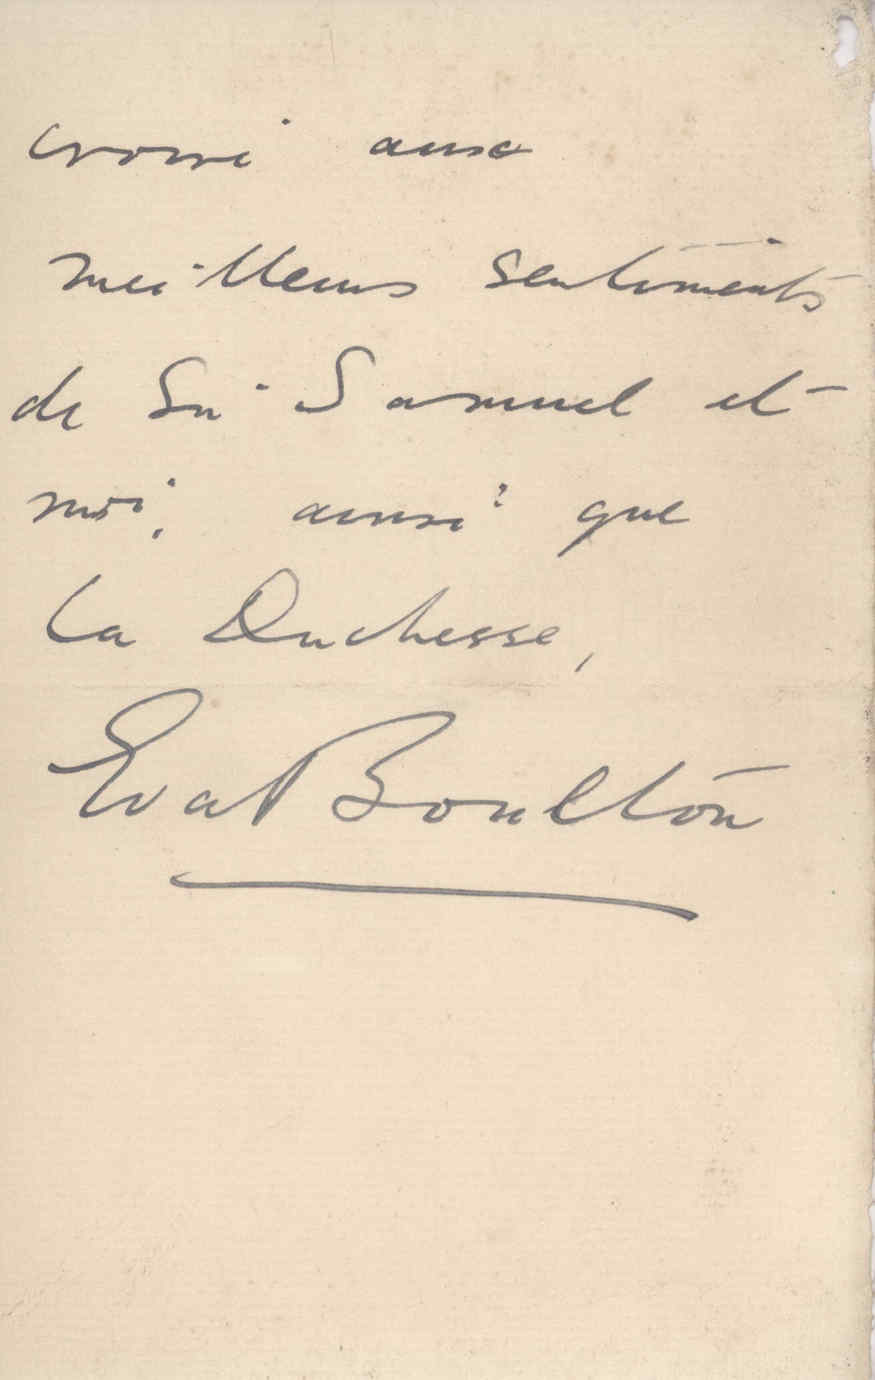 croire aux
meilleurs sentiments
de Sir Samuel et
moi, ainsi que
la Duchesse,
Eva Boulton